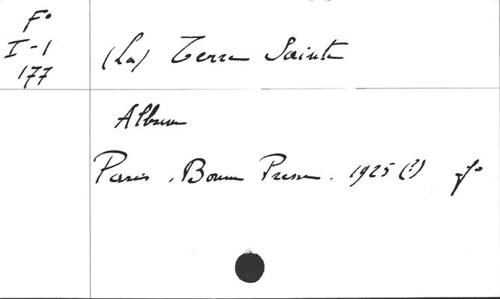 F°
I-1
177
(La) Terre Sainte
Album
Paris, Bonne Presse. 1925 (?) f°